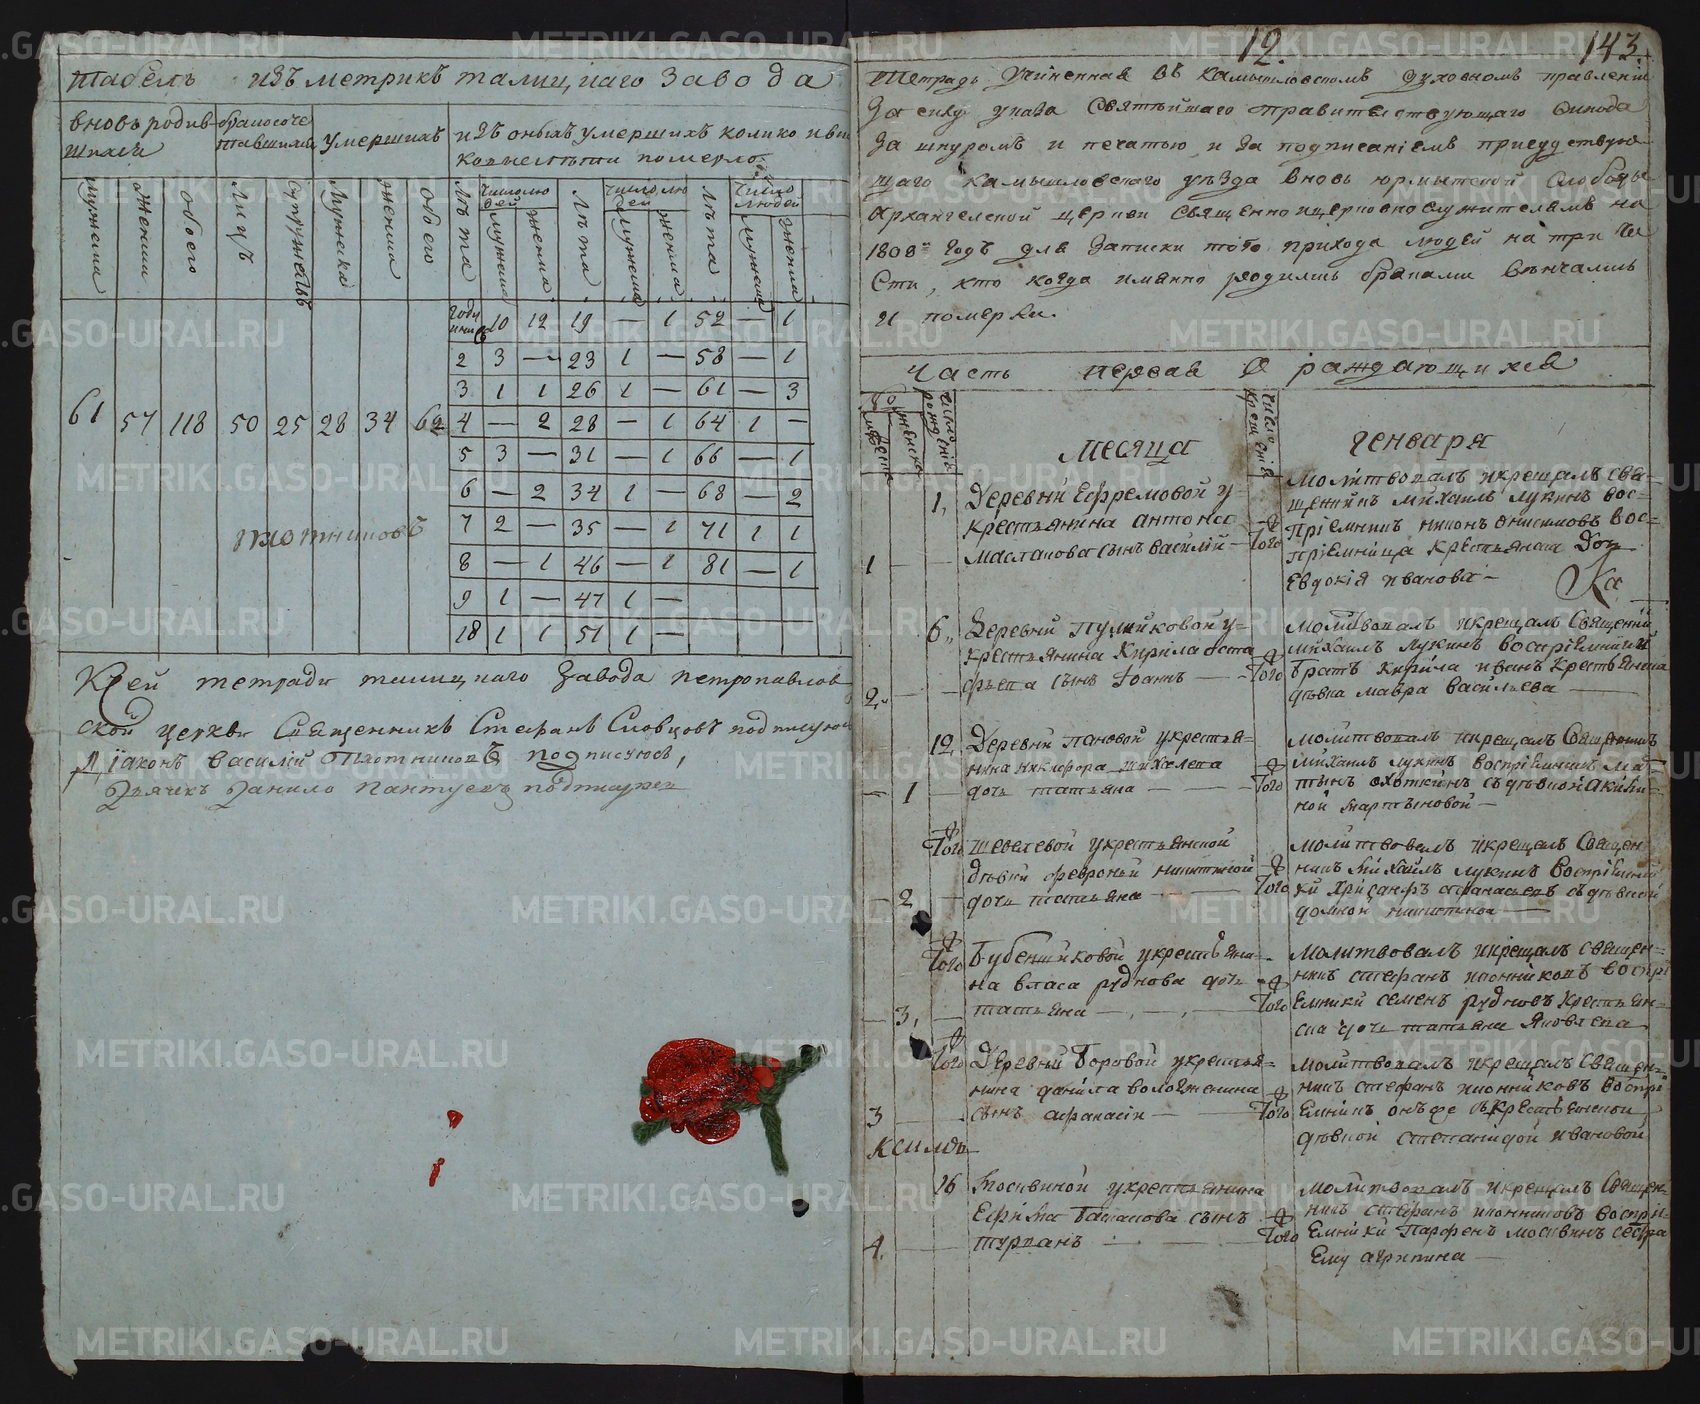 табель изъ метрикъ талицкаго завода
вновь родив-
шихся
бракосоче
тавшихся
умершихъ
изъ оныхъ умершихъ колико и въ
коихъ лѣтъ померло
мужеска
женска
обоего
лицъ
супружествъ
мужеска
женска
обоего
лѣта
число лю
дей
мужеска
женска
лѣта
число лю
дей
мужеска
женска
лѣта
число
людей
мужеска
женска
году 10 12 19 — 1 52 — 1
2 3 — 23 1 — 58 — 1
3 1 1 26 1 — 61 — 3
61 57 118 50 25 28 34 62
4 — 2 28 — 1 64 1 —
5 3 — 31 — 1 66 — 1
6 — 2 34 1 — 68 — 2
7 2 — 35 — 1 71 1 1
плотниковъ
8 — 1 46 — 1 81 — 1
9 1 — 47 1 —
18 1 1 51 1 —
К сей тетради талицкаго завода петропавлов
ской церкви Священникъ Стефанъ Словцовъ подписуюсь
Діаконъ василій Плотниковъ подписуюсь,
Дьячекъ Данило Пантуевъ
12. 143.
Тетрадь учиненная въ камышловскомъ духовномъ правленіи
За силу указа Святѣйшаго правительствующаго синода
За шнуромъ и печатью и за подписаніемъ присудствую
щаго камышловскаго уѣзда вновь юрмытской слободы
архангелской церкви священно и церковнослужителямъ на
1808й годъ для записки того прихода людей на три ча
сти, кто когда имянно родились браками вѣнчались
и померли.
Часть первая О раждающихся
мужеска
женска
число
рожденія
число
крещенія
месяца генваря
1, Деревни Ефремовой у
крестьянина антона
масланова сынъ василій — того
1
Молитвовалъ и крещалъ свя-
щенникъ михаилъ лукинъ вос-
пріемникъ никонъ онисимовъ вос-
пріемница крестьянская Доч
Евдокія иванова —
Ка
6, Деревни пульниковой у
крестьянина Кирила оста
фьева сынъ Іоаннъ — того
2
молитвовалъ и крещалъ Священни
михаилъ лукинъ воспріемники
братъ кирила иванъ крестьянина
дѣвка мавра васильева —
12, Деревни пановой у крестья-
нина никифора михалева
дочь татьяна — того
— 1 —
молитвовалъ и крещалъ Священникъ
михаилъ лукинъ воспріемникъ ма
тынъ охоткинъ съ дѣвкой акили-
ной мартыновой —
Того шевелевой у крестьянской
дѣвки февроньи никитиной
дочь татьяна — того
— 2 —
молитвовалъ и крещалъ Священ
никъ михаилъ лукинъ воспріемни
ки хрисанфъ афанасьевъ съ дѣвкой
домной никитиной —
Того Бубенщиковой у крестьяни-
на власа руднова дочь
татьяна — того
— 3, —
Молитвовалъ и крещалъ священ-
никъ стефанъ иконниковъ воспрі
Емники семенъ рудновъ крестьян-
ска дочь татьяна Яковлева
Того Деревни Боровой у крестья-
нина данила вологженина
сынъ афанасій — того
3
молитвовалъ и крещалъ священ-
никъ стефанъ иконниковъ воспрі
Емникъ онъ же съ крестьянской
дѣвкой степанидой ивановой
К симъ
16 москвиной у крестьянина
Ефима Баланова сынъ
турианъ — того
4.
молитвовалъ и крещалъ Священ-
никъ стефанъ иконниковъ воспрі-
Емники Парфенъ москвинъ сестра
Ему агрипина —
METRIKI.GASO-URAL.RU